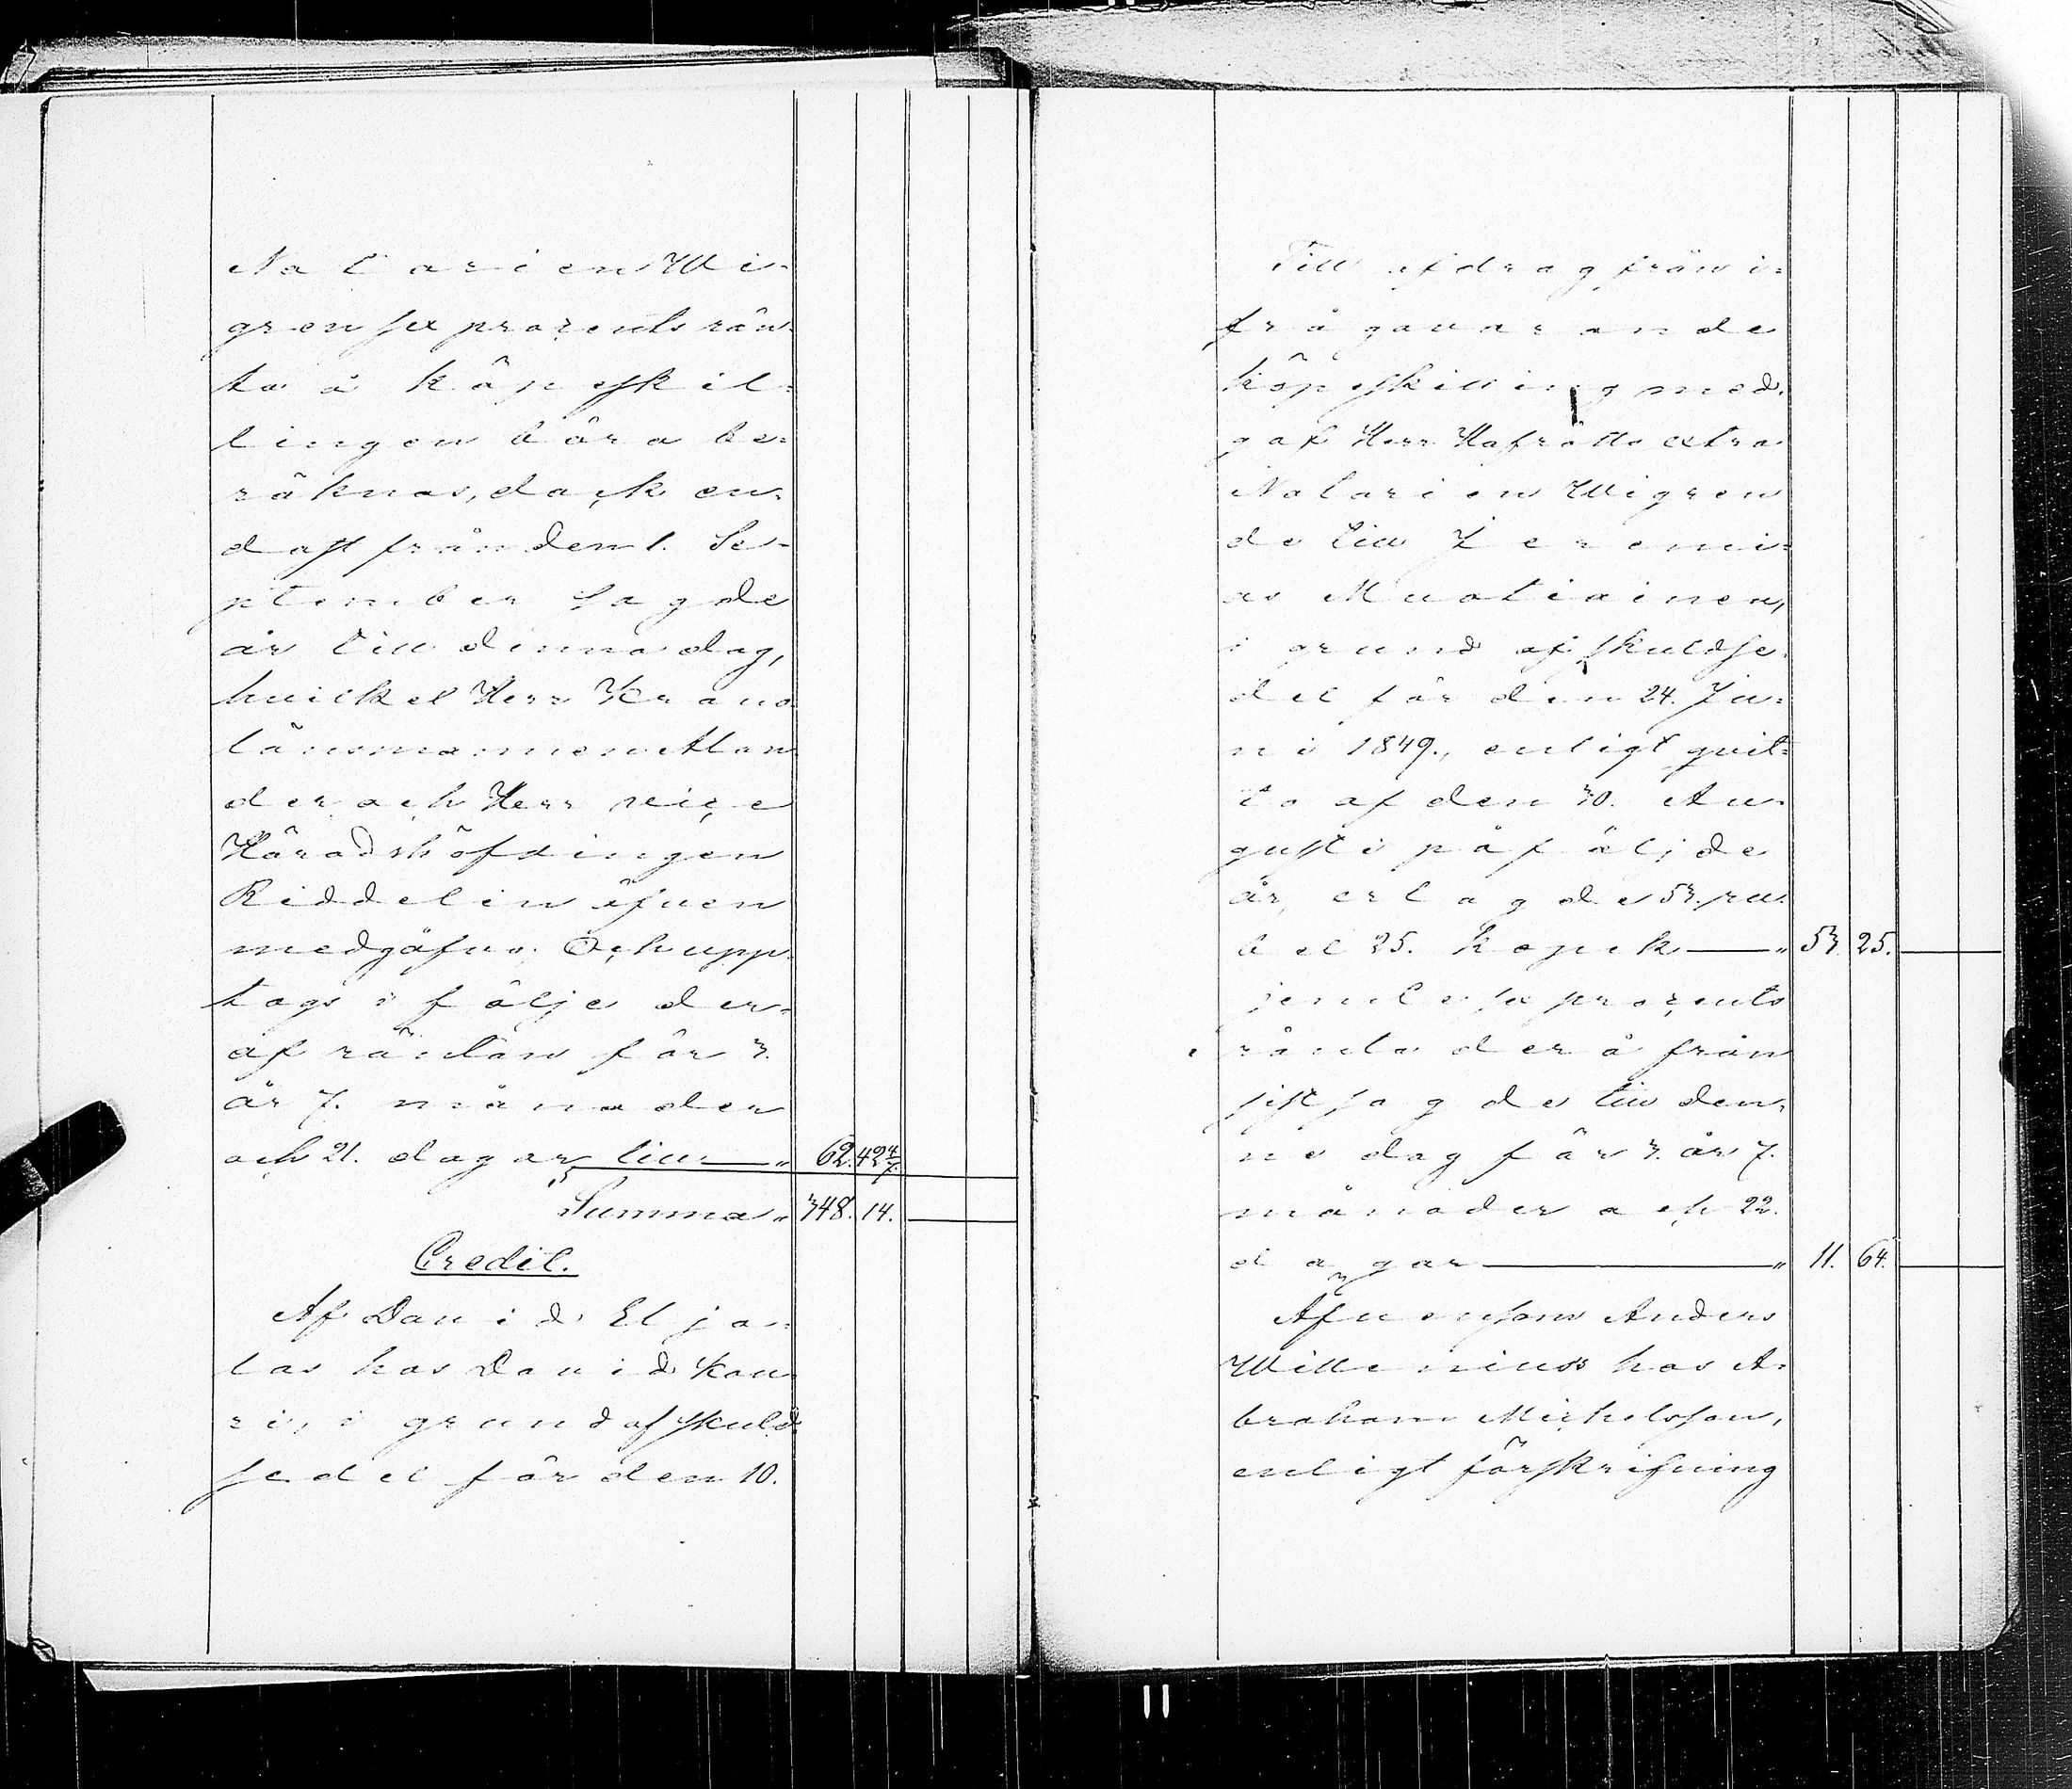 Notarien Wi-
gren sex procents rän-
ta å köpeskil-
lingen böra be-
räknas, dock en-
dast från den 1. Se-
ptember sagde
år till denna dag,
hvilket Herr Krono
länsmannen Alan-
der och Herr vice
Häradshöfdingen
Riddelin äfven
medgåfvo. Och upp-
togs i följe der-
af räntan för 3.
år 7. månader
och 21. dagar till — " 62. 42 4/7.
Summa " 348. 14.
Credit.
Af David Elja-
las hos David Kau-
ri, i grund af skuld
sedel för den 10.
Till afdrag från i-
frågavarande
köpeskilling med-
gaf Herr Hofrätts extra
Notarien Wigren
de till Jeremi-
as Muatiainen,
i grund af skuldse-
del för den 24. Ju-
ni 1849., enligt qvit-
to af den 30. Au-
gusti påföljde
år, erlagde 53. ru-
bel 25. kopek — " 53. 25.
jemte sex procents
ränta derå från
sistsagde till den-
ne dag för 3. år 7.
månader och 22.
dagar — " 11. 64.
Äfvensom Anders
Willenius's hos A-
braham Michelsson,
enligt förskrifning
11